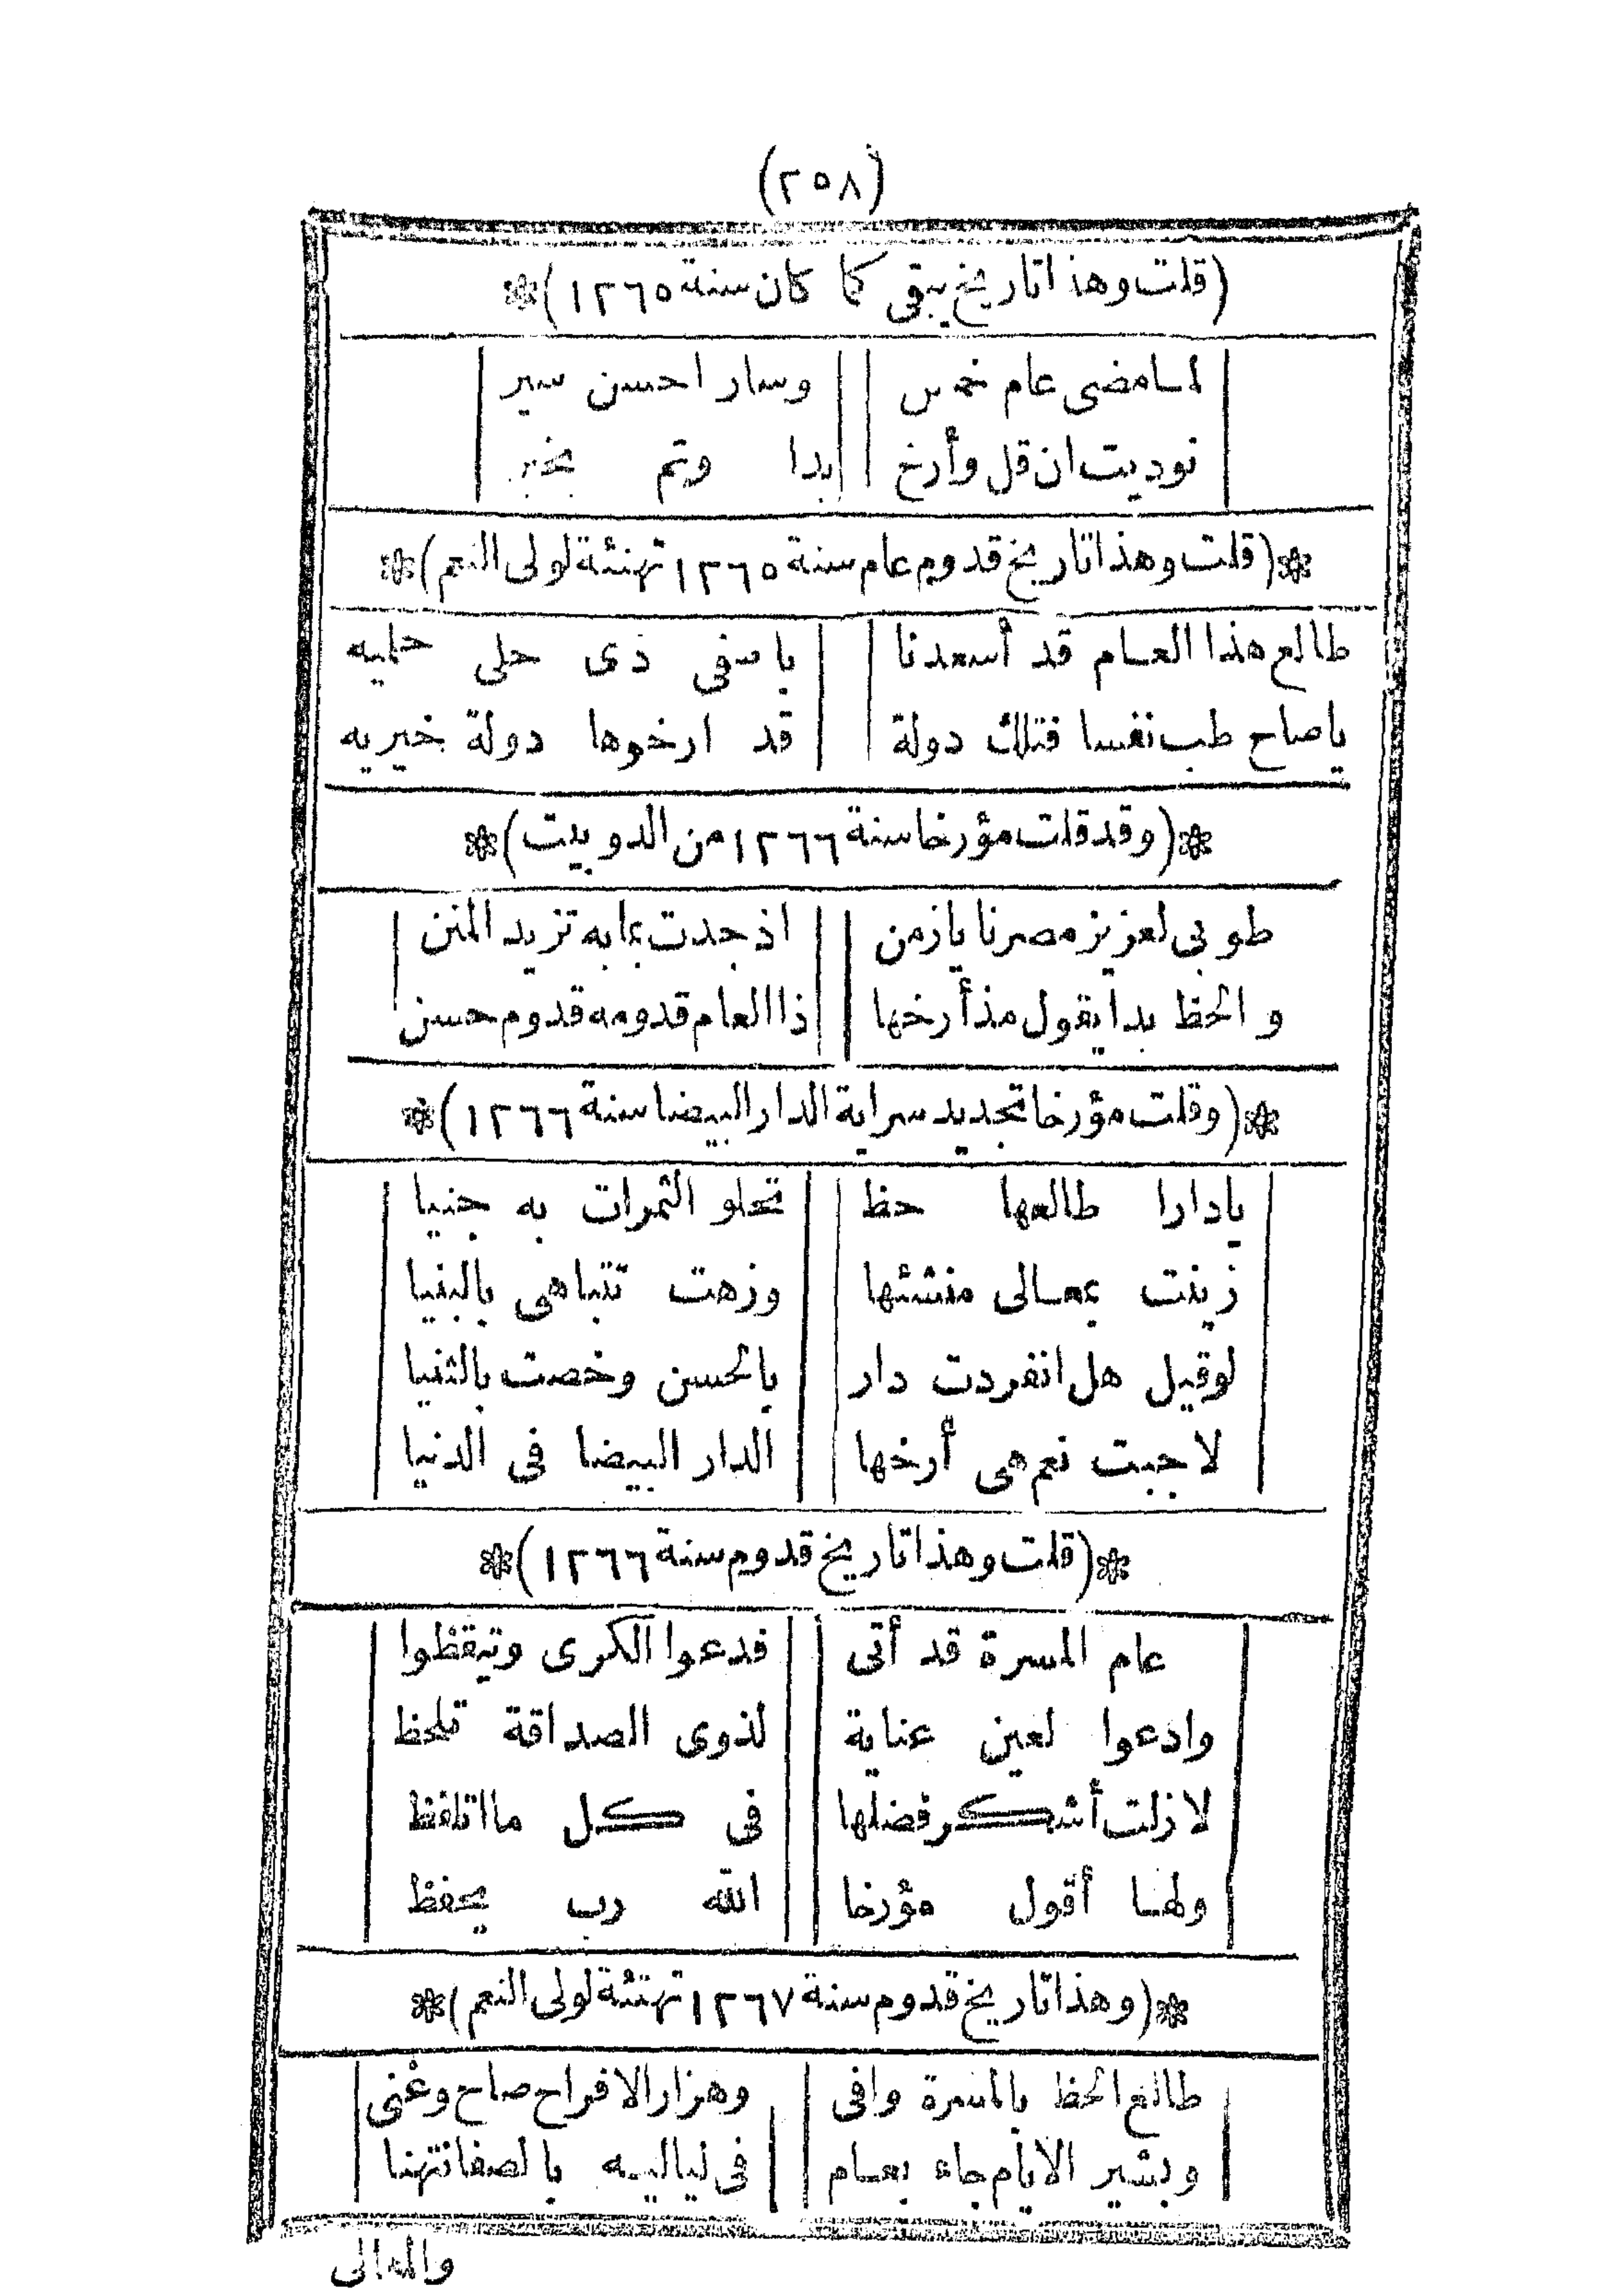 (٢٥٨)
(قلت وهذا تاريخ يبقى كما كان سنة ١٢٦٥)
لما مضى عام خمس وسار احسن سير
نوديت ان قل وأرخ بدا وتم بخير
(قلت وهذا تاريخ قدوم عام سنة ١٢٦٥ تهنئة لولى النعم)
طالع هذا العام قد أسعدنا يا سفى ذى حلى حليه
يا صاح طب نفسا فتلك دولة قد ارخوها دولة خيريه
(وقد قلت مؤرخا سنة ١٢٦٦ من الدوبيت)
طوبى لعزيز مصرنا يا زمن اذ جدت بما به تزيد المنن
والحظ بدا يقول مذ أرخها ذا العام قدومه قدوم حسن
(وقلت مؤرخا تجديد سراية الدار البيضا سنة ١٢٦٦)
يا دارا طالعها حظ تحلو الثمرات به جنيا
زينت بمعالى منشئها وزهت تتباهى بالبنيا
لو قيل هل انفردت دار بالحسن وخصت بالثنيا
لاجبت نعم هى أرخها الدار البيضا فى الدنيا
(قلت وهذا تاريخ قدوم سنة ١٢٦٦)
عام المسرة قد أتى فدعوا الكرى وتيقظوا
وادعوا لعين عناية لذوى الصداقة تلحظ
لا زلت أشكر فضلها فى كل ما اتلفظ
ولها أقول مؤرخا الله رب يحفظ
(وهذا تاريخ قدوم سنة ١٢٦٧ تهنئة لولى النعم)
طالع الحظ بالمسرة وافى وهزار الافراح صاح وغنى
وبشير الايام جاء بعام فى لياليه بالصفا نتهنا
والمعالى